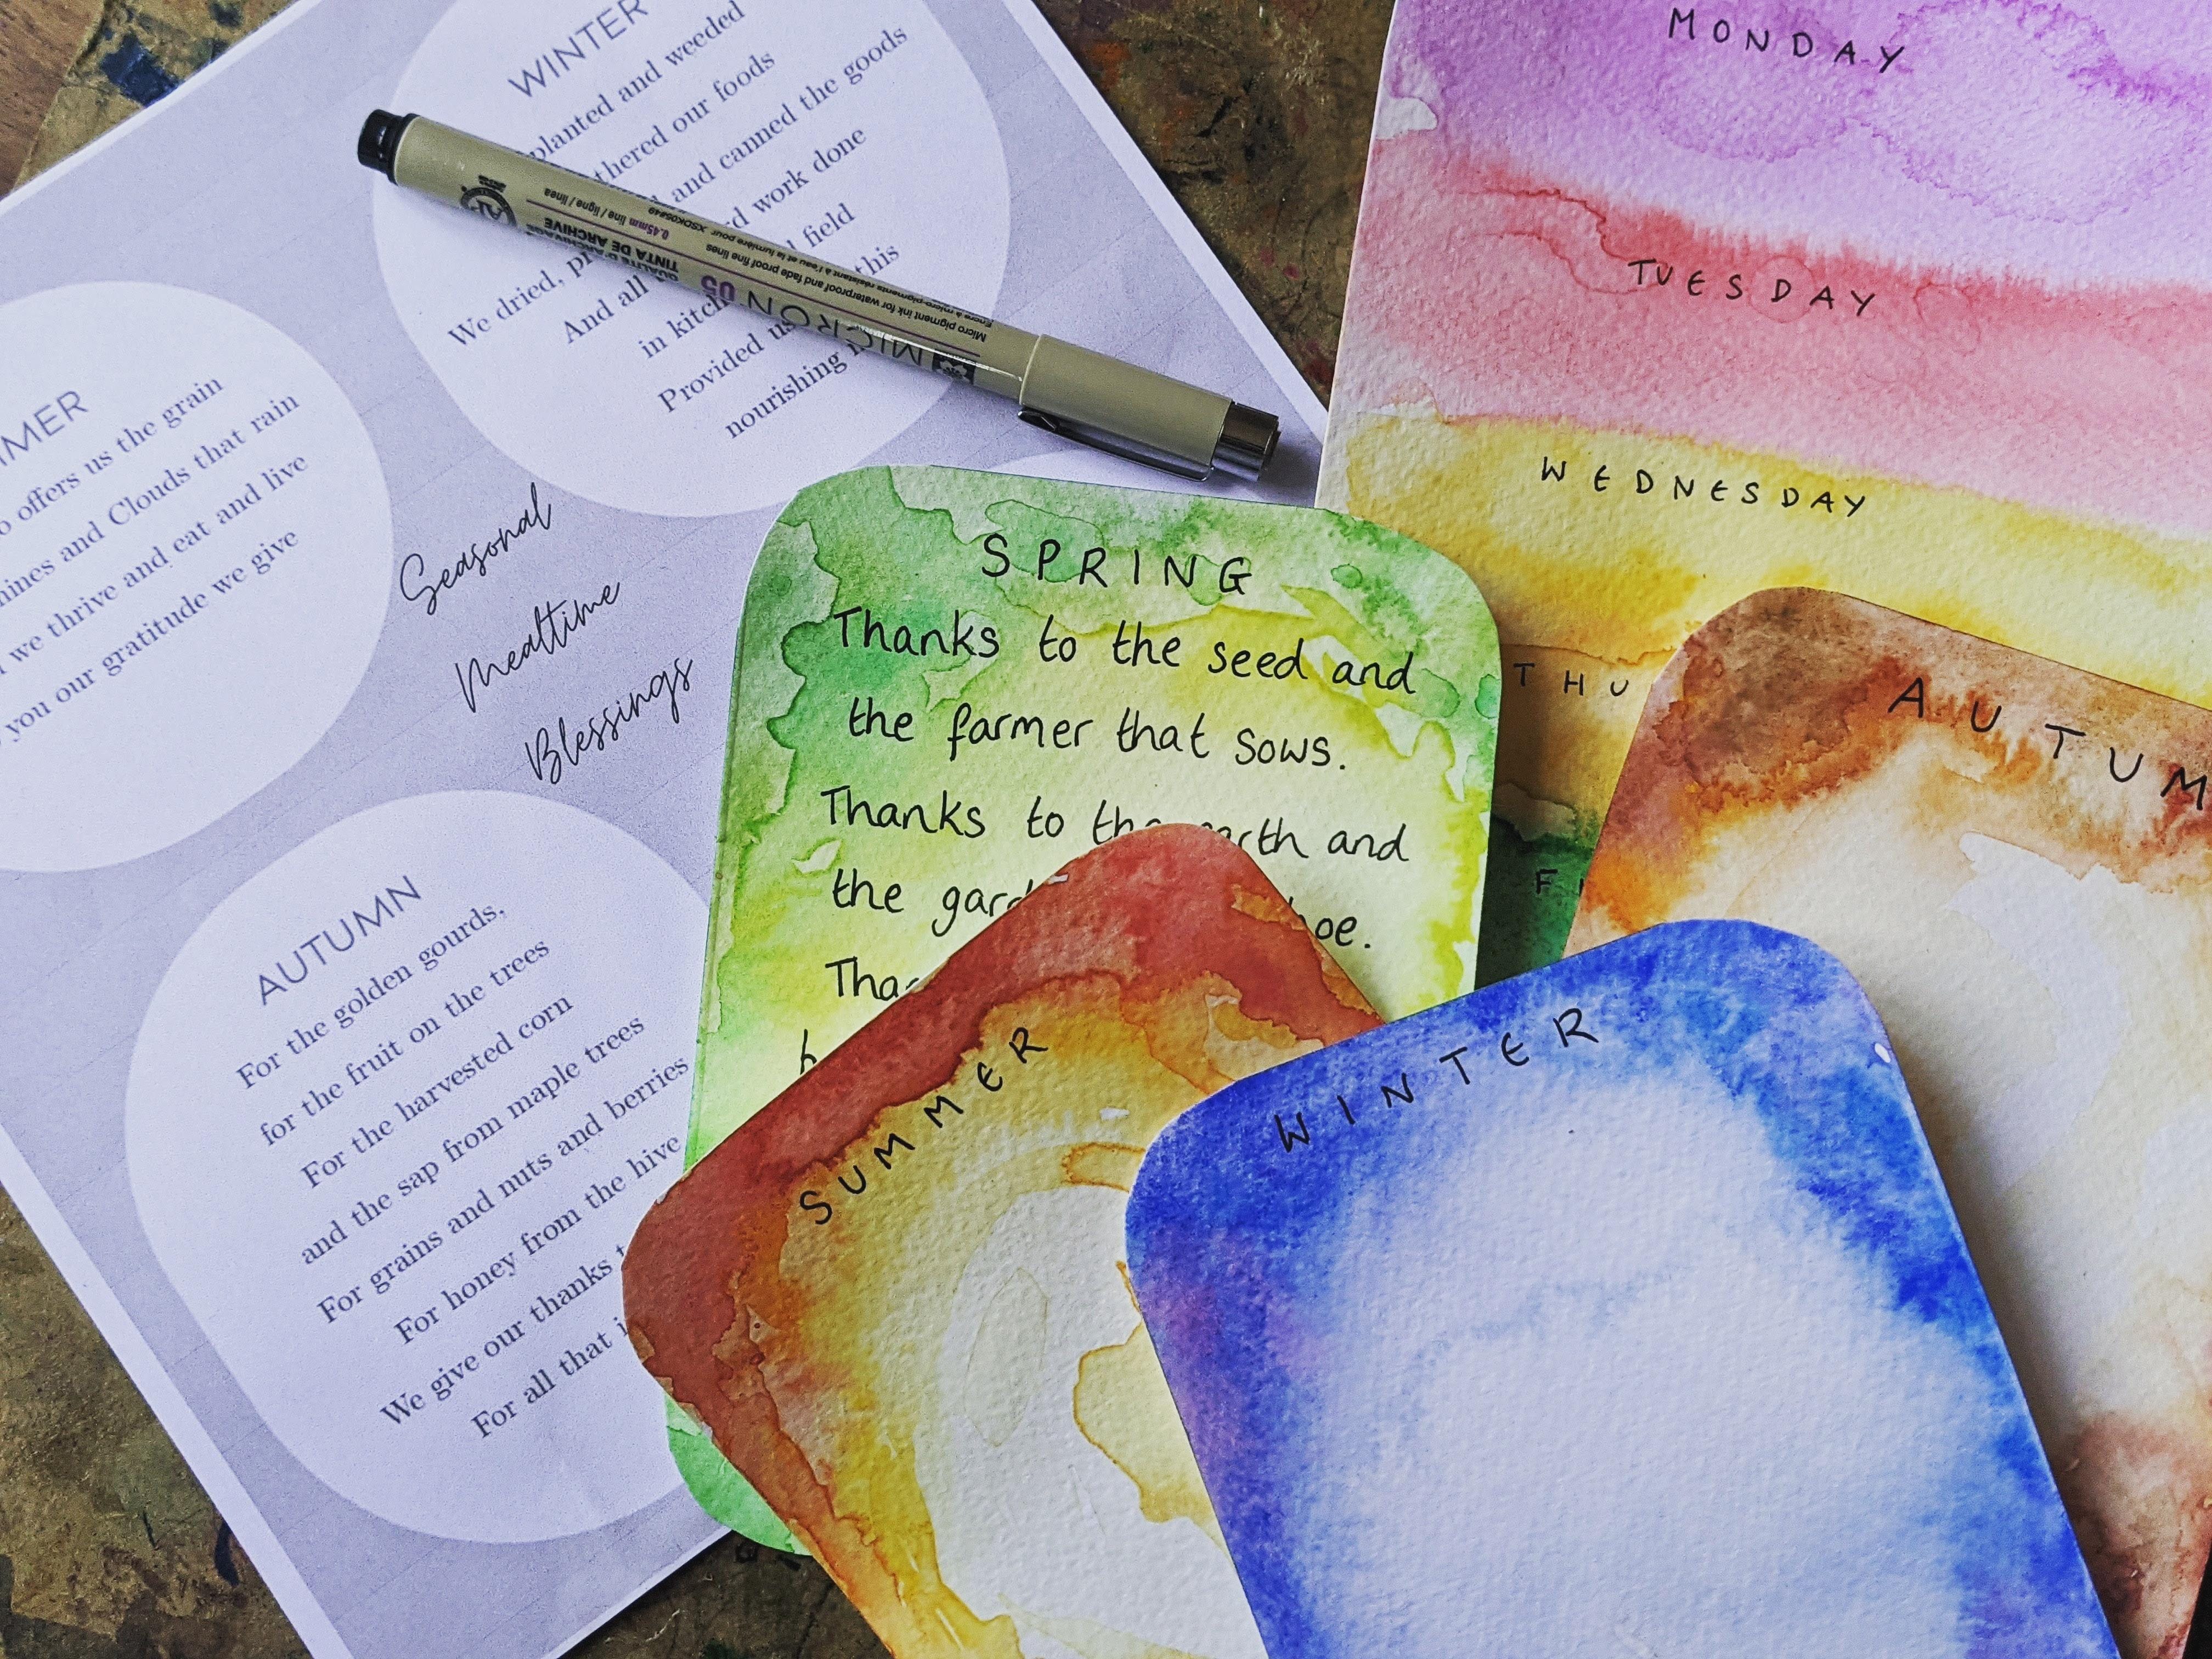 WINTER
planted and weeded
thered our foods
We dried, pr and canned the goods
And all rd work done
in kitch field
Provided us this
nourishing
MER
offers us the grain
hines and Clouds that rain
we thrive and eat and live
you our gratitude we give
Seasonal
Mealtime
Blessings
AUTUMN
For the golden gourds,
for the fruit on the trees
For the harvested corn
and the sap from maple trees
For grains and nuts and berries
For honey from the hive
We give our thanks t
For all that i
MICRON 05
QUALITÉ D'ARCHIVAGE
TINTA DE ARCHIVE
0.45mm line / ligne / línea
Micro pigment ink for waterproof and fade proof fine lines.
XSDK05#49
AP
MONDAY
TUESDAY
WEDNESDAY
THU
F
SPRING
Thanks to the seed and
the farmer that sows.
Thanks to the earth and
the gard hoe.
Tha
b
SUMMER
WINTER
AUTUM